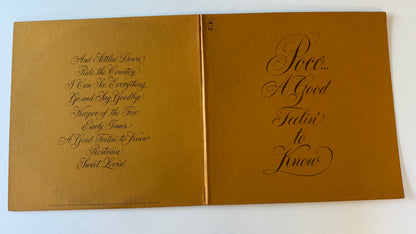 And Settlin' Down
Ride the Country
I Can See Everything
Go and Say Goodbye
Keeper of the Fire
Early Times
A Good Feelin' to Know
Restrain
Sweet Lovin'
Poco...
A Good
Feelin'
to
Know